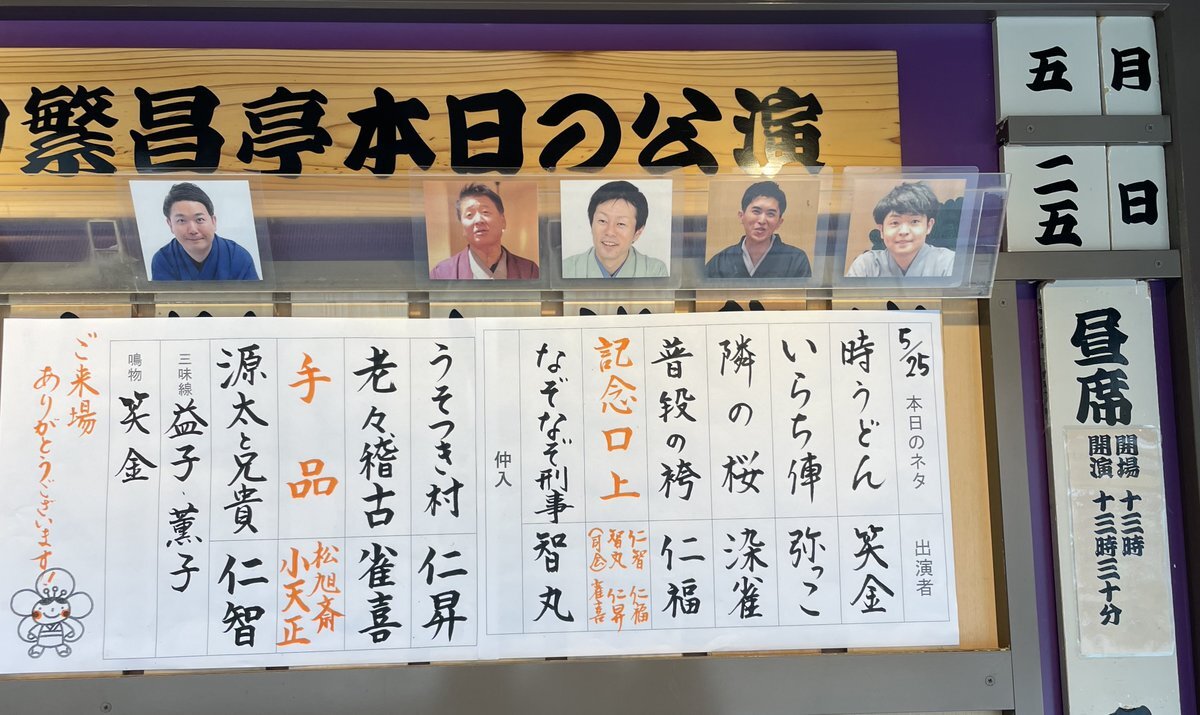 繁昌亭本日の公演
五月
二五日
昼席
開場 十三時
開演 十三時三十分
5/25 本日のネタ 出演者
時うどん 笑金
いらち俥 弥っこ
隣の桜 染雀
普段の袴 仁福
記念口上 仁智 仁福 智丸 仁昇 雀喜
なぞなぞ刑事 智丸
仲入
うそつき村 仁昇
老々稽古 雀喜
手品 松旭斎小天正
源太と兄貴 仁智
三味線 益子・薫子
鳴物 笑金
ご来場
ありがとうございます!